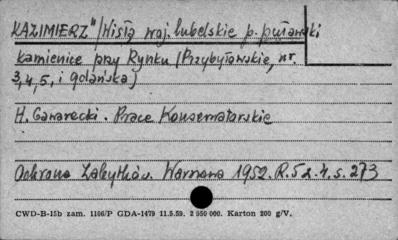 KAZIMIERZ n/Wisłą woj. lubelskie p. puławski
kamienice przy Rynku (Przybyławskie, nr.
3, 4, 5, i gdańska)
H. Gawarecki. Prace Konserwatorskie
Ochrona Zabytków. Warszawa 1952. R. 5 z. 4. s. 273
CWD-B-15b zam. 1106/P GDA-1479 11.5.59. 2 950 000. Karton 200 g/V.